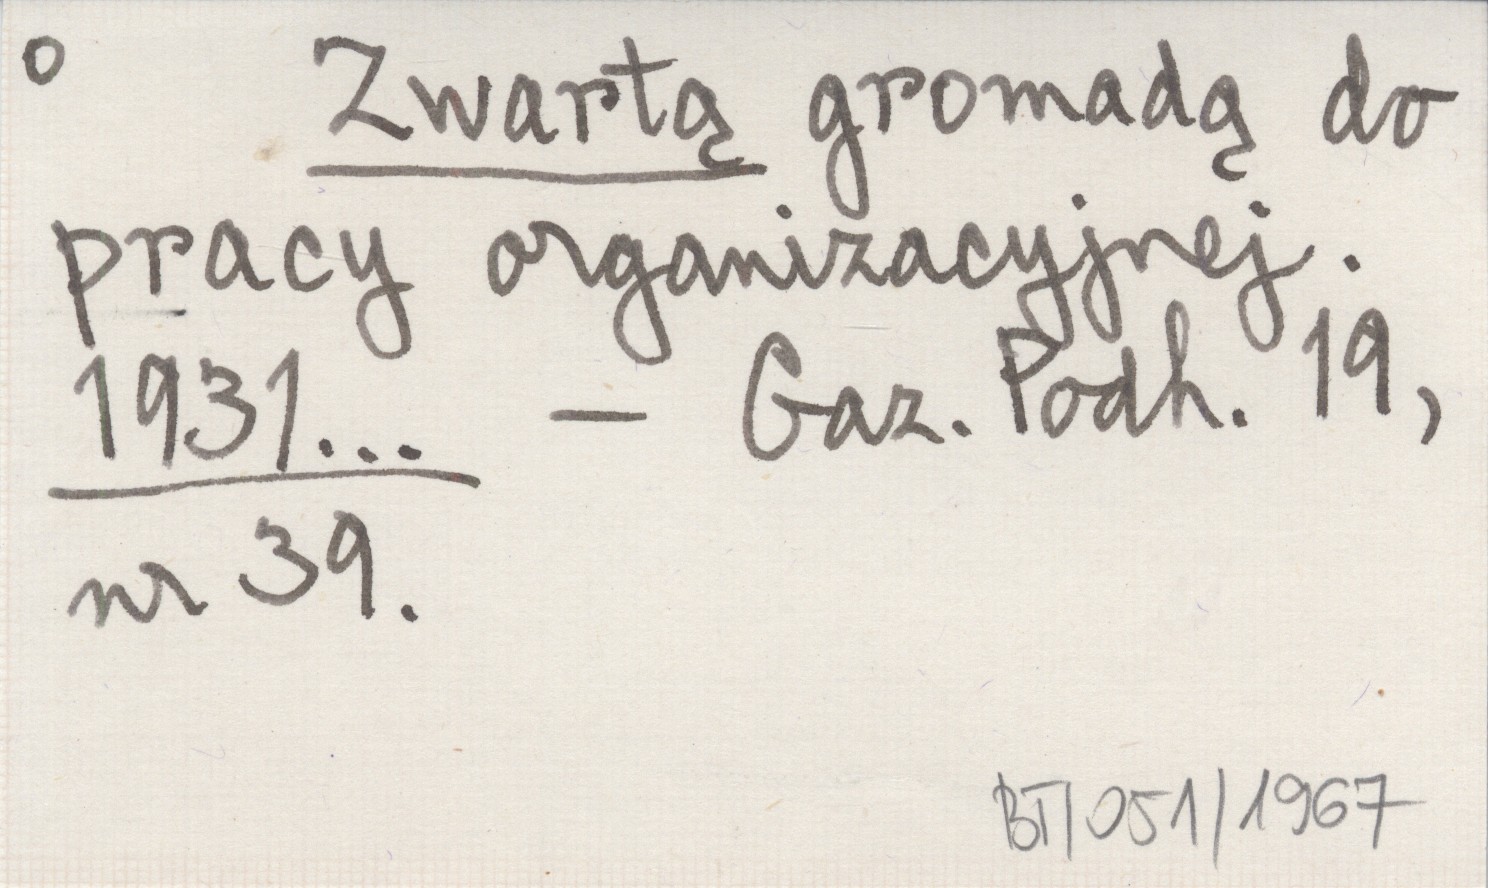 o Zwartą gromadą do
pracy organizacyjnej.
1931... — Gaz. Podh. 19,
nr 39.
BT/051/1967